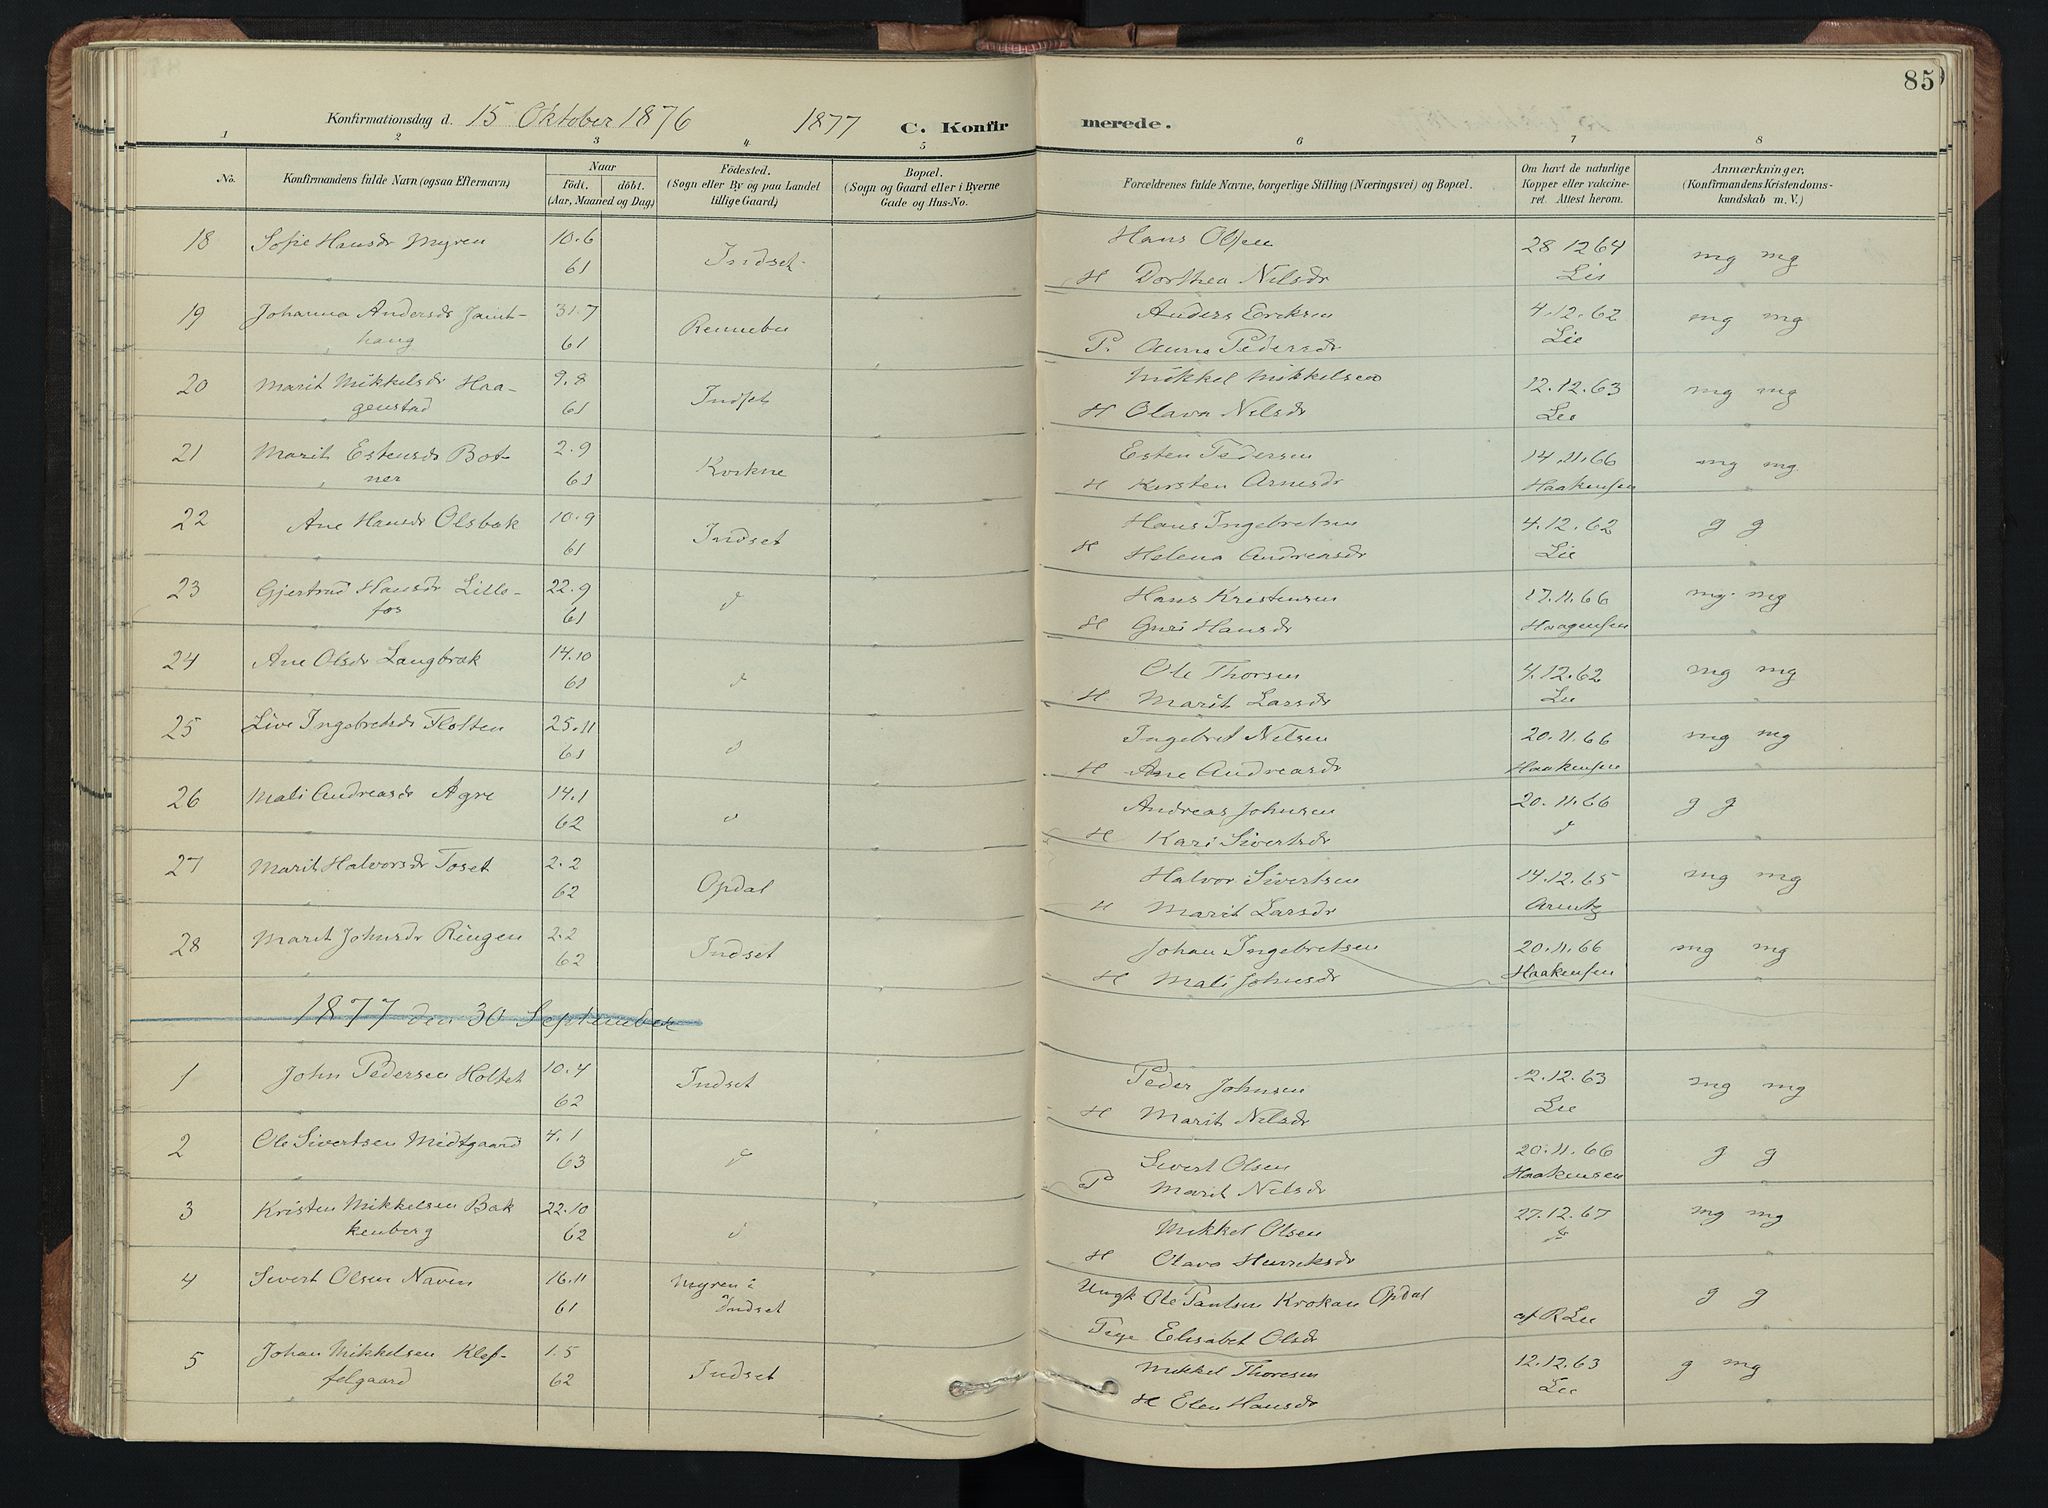 85
Konfirmationsdag d. 15 Oktober 1876 1877 C. Konfirmerede.
1 2 3 4 5 6 7 8
No. Konfirmandens fulde Navn (ogsaa Efternavn) Naar födt. döbt. (Aar, Maaned og Dag) Födested. (Sogn eller By og paa Landet tillige Gaard) Bopæl. (Sogn og Gaard eller i Byerne Gade og Hus-No. Forældrenes fulde Navne, borgerlige Stilling (Næringsvei) og Bopæl. Om havt de naturlige Kopper eller vakcineret. Attest herom. Anmærkninger, (Konfirmandens Kristendomskundskab m. V.)
18 Sofie Hansdr Myren 10.6 Indset Hans Olsen 28 12 64 mg mg
61 H Dorthea Nilsdr Lie
19 Johanna Andersdr Jamt- 31.7 Rennebu Anders Eriksen 4.12.62 mg mg
haug 61 P. Pedersdr Lie
20 Marit Mikkelsdr Haa- 9.8 Indset Mikkel Mikkelsen 12.12.63 mg mg
genstad 61 H Olava Nilsdr Lie
21 Marit Estensdr Bot- 2.9 Kvikne Esten Pedersen 14.11.66 mg mg.
ner 61 H Kirsten Arnesdr Haakensen
22 Ane Hansdr Olsbak 10.9 Indset Hans Ingebretsen 4.12.62 g g
61 H Helena Andreasdr Lie
23 Gjertrud Hansdr Lille- 22.9 d Hans Kristensen 17.11.66 mg. mg
fos 61 H Guri Hansdr Haagensen
24 Ane Olsdr Langbrak 14.10 d Ole Thorsen 4.12.62 mg mg
61 H Marit Larsdr Lie
25 Live Ingebretsdr Flotten 25.11 d Ingebret Nilsen 20.11.66 mg mg
61 H Ane Andreasdr Haakensen
26 Mali Andreasdr Agre 14.1 d Andreas Johnsen 20.11.66 g g
62 H Kari Sivertsdr d
27 Marit Halvorsdr Toset 2.2 Opdal Halvor Sivertsen 14.12.65 mg mg
62 H Marit Larsdr Arentz
28 Marit Johnsdr Ringen 2.2 Indset Johan Ingebretsen 20.11.66 mg mg
62 H Mali Johnsdr Haakensen
1877 den 30 September
1 John Pedersen Holtet 10.4 Indset Peder Johnsen 12.12.63 mg mg
62 H Marit Nilsdr Lie
2 Ole Sivertsen Midtgaard 4.1 d Sivert Olsen 20.11.66 g g
63 P Marit Nilsdr Haakensen
3 Kristen Mikkelsen Bak 22.10 d Mikkel Olsen 27.12.67 mg mg
kenberg 62 H Olava Henriksdr
4 Sivert Olsen Naven 16.11 Myren i Ungk Ole Paulsen Krokan Opdal g g
61 Indset Pige Elisabet Olsdr af R Lie
5 Johan Mikkelsen Klef- 1.5 Indset Mikkel Thoresen 12.12.63 g mg
felgaard 62 H Elen Hansdr Lie